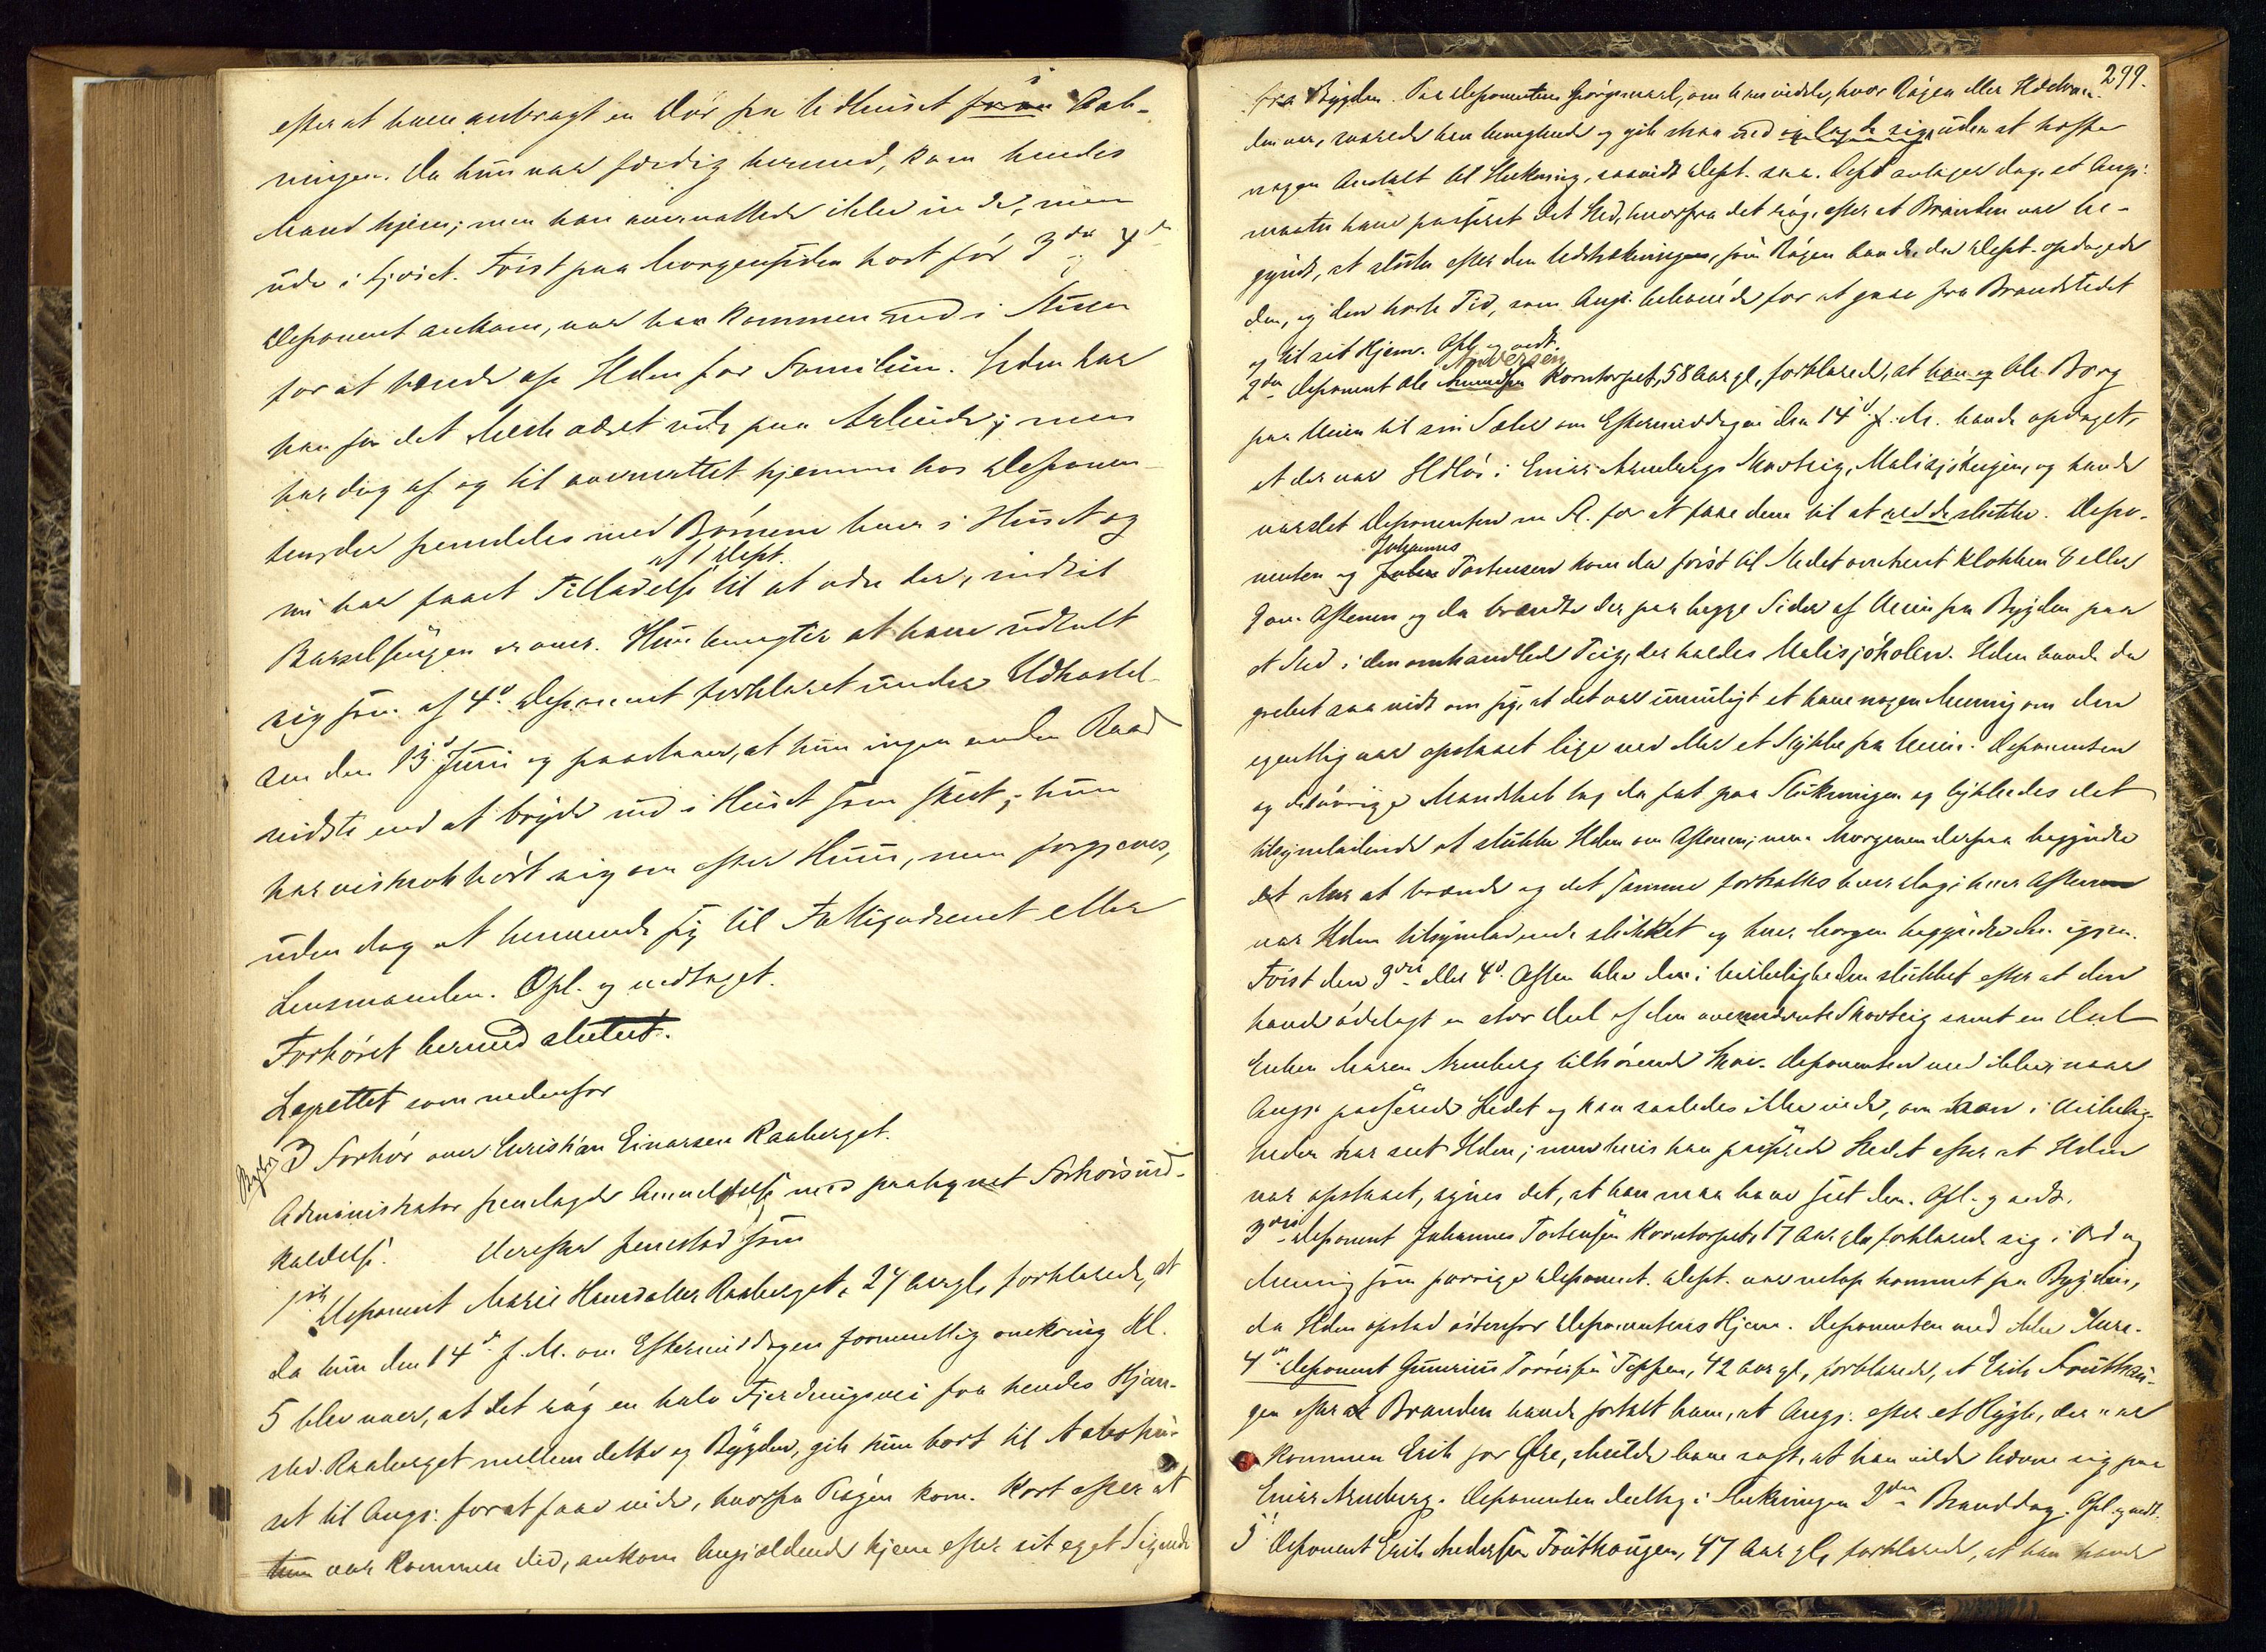 efter at have anbragt en Dör fra Udhuset foran i Aab-
ningen. Da hun var færdig hermed, kom hendes
Mand hjem; men han overnattede ikke inde, men
ude i Fjöset. Först paa Morgensiden kort för 3die og 4de
Deponent ankom, var han kommen ind i Stuen
for at tænde op Ilden for Familien. Siden har
han for det Meste været ude paa Arbeide; men
har dog af og til overnattet hjemme hos Deponen-
ten, der fremdeles med Börnene boer i Huset og
nu har faaet Tilladelse af 1 Dept. til at være der, indtil
Barselsengen er over. Hun benegter at have udtalt
sig som af 4de Deponent forklaret under Udkastel-
sen den 13de Juni og paastaaer, at hun ingen anden Raad
vidste end at bryde ind i Huset som skeet; hun
har vistnok hört sig om efter Huus, men forgjæves,
uden dog at henvende sig til Fattigvæsenet eller
Lensmanden. Opl. og vedtaget.
Forhöret hermed sluttet.
Lagrettet som nedenfor
3 Forhör over Christian Einarsen Raaberget.
Administrator fremlagde Anmeldelse med paategnet Forhörsind-
kaldelse. Derefter fremstod som
1ste Deponent Marie Hansdatter Raaberget, 27 Aar gl, forklarede, at
da hun den 14de f. M. om Eftermiddagen formentlig omkring Kl.
5 blev vaer, at det rög en halv Fjerdingsvei fra hendes Hjem-
sted Raaberget mellem dette og Bygden, gik hun bort til Nabohu-
set til Angj: for at faae vide, hvorfra Rögen kom. Kort efter at
hun var kommen did, ankom Angjældende hjem efter sit eget Sigende
299.
fra Bygden. Paa Deponentens Spörgsmaal, om han vidste, hvor Rögen eller Ildebran-
den var, svarede han benegtende og gik strax ind og lagde sig, uden at træffe
nogen Anstalt til Slukning, saavidt Dept. saa. Dept antager dog, at Angj:
maatte have passeret det Sted, hvorfra det rög, efter at Branden var be-
gyndt, at slutte efter den Udstrækning, som Rögen havde, da Dept. opdagede
den, og den korte Tid, som Angj. behövede for at gaae fra Brandstedet
og til sit Hjem. Opl. og vedt.
2den Deponent Ole Andersen Korntorpet, 58 Aar gl, forklarede, at han og Ole Borg
paa Veien til sin Sæter om Eftermiddagen den 14de f. M. havde opdaget,
at der var Ildlös i Einar Arnebergs Skovteig, Malisjöteigen, og havde
varslet Deponenten m. Fl. for at faae dem til at redde slukke. Depo-
nenten og Johannes Torstensen kom da först til Stedet omtrent Klokken 8 eller
9 om Aftenen og da brændte der paa begge Sider af Veien fra Bygden paa
et Sted i den omhandlede Teig, der kaldes Malisjöholen. Ilden havde da
grebet saa vidt om sig, at det var umuligt at have nogen Mening om den
egentlig var opstaaet lige ved eller et Stykke fra Veien. Deponenten
og det övrige Mandskab tog da fat paa Slukningen og lykkedes det
tilsyneladende at slukke Ilden om Aftenen; men Morgenen derpaa begyndte
det atter at brænde og det samme fortsattes hver Dag; hver Aften
var Ilden tilsyneladende slukket og hver Morgen begyndte den igjen.
Först den 3die eller 4de Aften blev den i Virkeligheden slukket efter at den
havde ödelagt en stor Deel af den ovennævnte Skovteig samt en Deel
Enken Maren Arneberg tilhörende Skov. Deponenten ved ikke, naar
Angj: passerede Stedet og kan saaledes ikke vide, om han i Virkelig-
heden har seet Ilden; men hvis han passerede Stedet efter at Ilden
var opstaaet, synes det, at han maa have seet den. Opl. og vedt.
3die Deponent Johannes Torstensen Korntorpet, 17 Aar gl, forklarede sig i Ord og
Mening som forrige Deponent. Dept. var netop kommet fra Bygden,
da Ilden opstod östenfor Deponentens Hjem. Deponenten ved ikke Mere.
4de Deponent Gunerius Toresen Toppen, 42 Aar gl, forklarede, at Erik Fouthau-
gen efter at Branden havde fortalt ham, at Angj. efter et Rygte, der var
kommen Erik for Öre, skulde have sagt, at han vilde hævne sig paa
Einar Arneberg. Deponenten deeltog i Slukningen 2den Branddag. Opl. og vedt.
5te Deponent Erik Andersen Fouthaugen, 47 Aar gl, forklarede, at han havde